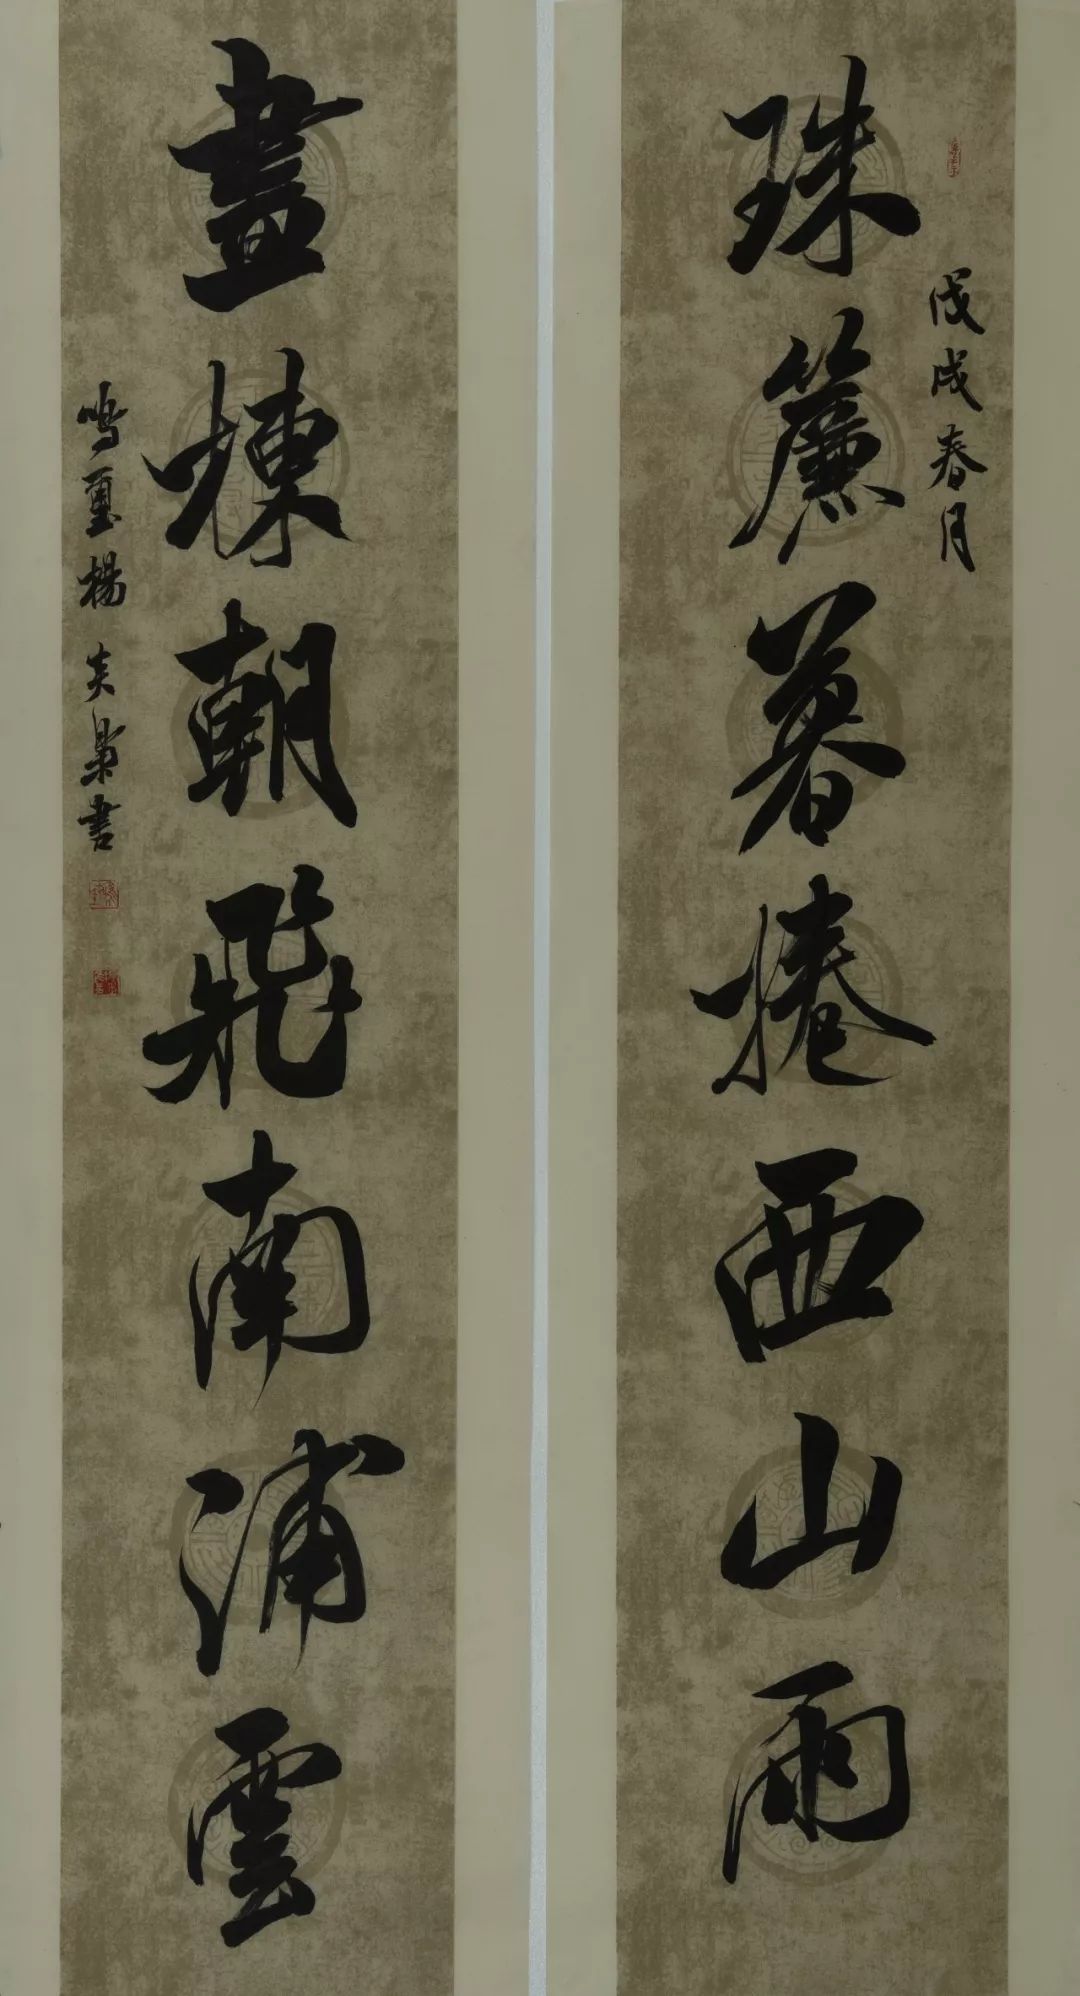 戊戌春月
珠簾暮捲西山雨
畫棟朝飛南浦雲
鳴璽楊炎書